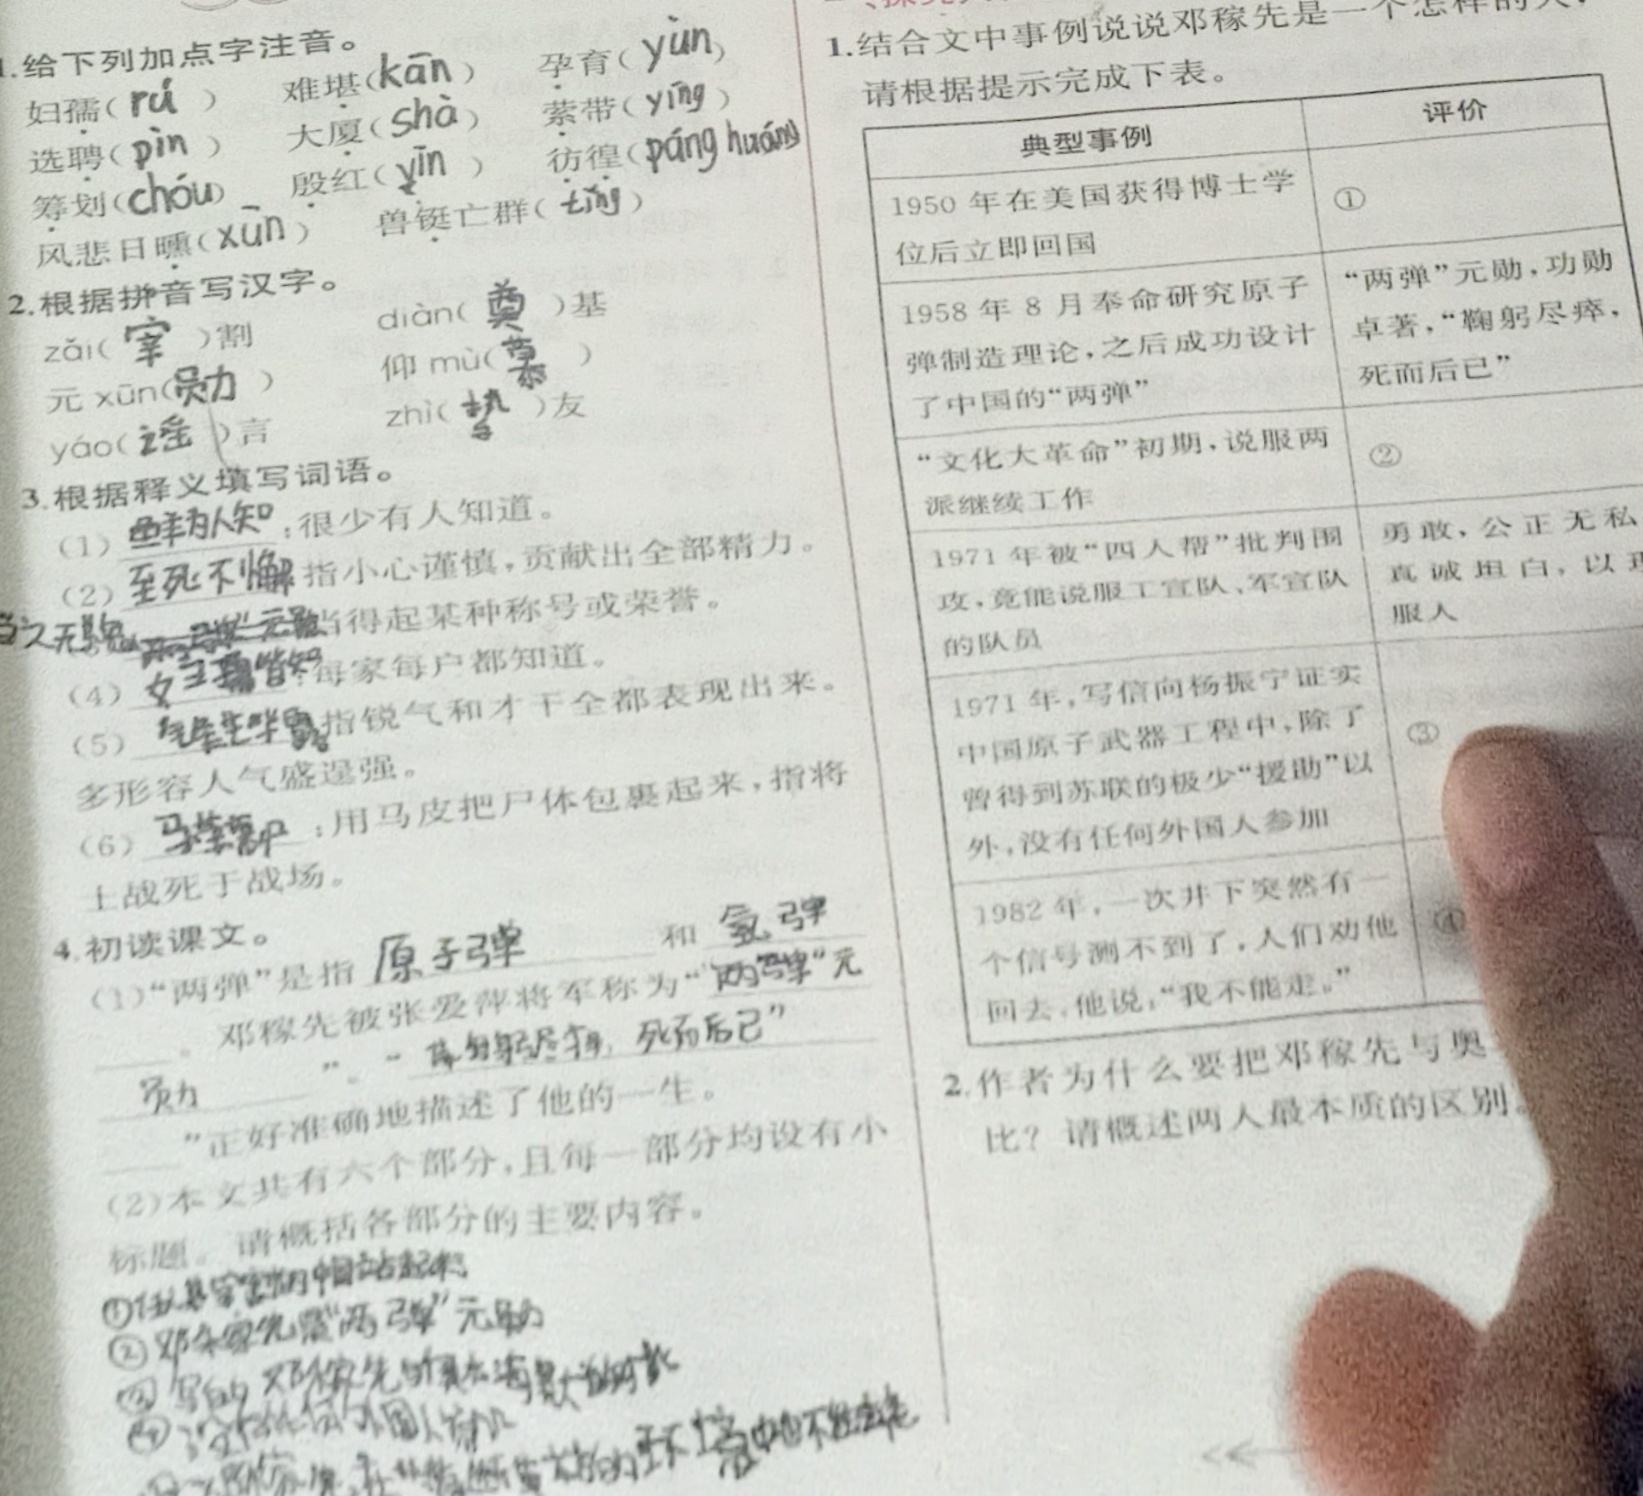 1.给下列加点字注音。
妇孺(rú) 难堪(kān) 孕育(yùn)
选聘(pìn) 大厦(shà) 萦带(yíng)
筹划(chóu) 殷红(yīn) 彷徨(páng huáng)
风悲日曛(xūn) 兽铤亡群(tǐng)
2.根据拼音写汉字。
zǎi(宰)割 diàn(奠)基
元 xūn(勋) 仰 mù(慕)
yáo(谣)言 zhì(挚)友
3.根据释义填写词语。
(1)鲜为人知:很少有人知道。
(2)至死不懈 指小心谨慎,贡献出全部精力。
当之无愧 当得起某种称号或荣誉。
(4) 每家每户都知道。
(5) 指锐气和才干全都表现出来。
多形容人气盛逞强。
(6) :用马皮把尸体包裹起来,指将
士战死于战场。
4.初读课文。
(1)“两弹”是指 原子弹 和 氢弹
。邓稼先被张爱萍将军称为“两弹”元
勋 ”。“鞠躬尽瘁,死而后已”
”正好准确地描述了他的一生。
(2)本文共有六个部分,且每一部分均设有小
标题。请概括各部分的主要内容。
②邓稼先是“两弹”元勋
1.结合文中事例说说邓稼先是一个怎样的人?
请根据提示完成下表。
典型事例 评价
1950 年在美国获得博士学 ①
位后立即回国
1958 年 8 月奉命研究原子 “两弹”元勋,功勋
弹制造理论,之后成功设计 卓著,“鞠躬尽瘁,
了中国的“两弹” 死而后已”
“文化大革命”初期,说服两 ②
派继续工作
1971 年被“四人帮”批判围 勇敢,公正无私
攻,竟能说服工宣队、军宣队 真诚坦白,以理
的队员 服人
1971 年,写信向杨振宁证实
中国原子武器工程中,除了 ③
曾得到苏联的极少“援助”以
外,没有任何外国人参加
1982 年,一次井下突然有一 ④
个信号测不到了,人们劝他
回去,他说:“我不能走。”
2.作者为什么要把邓稼先与奥
比?请概述两人最本质的区别。